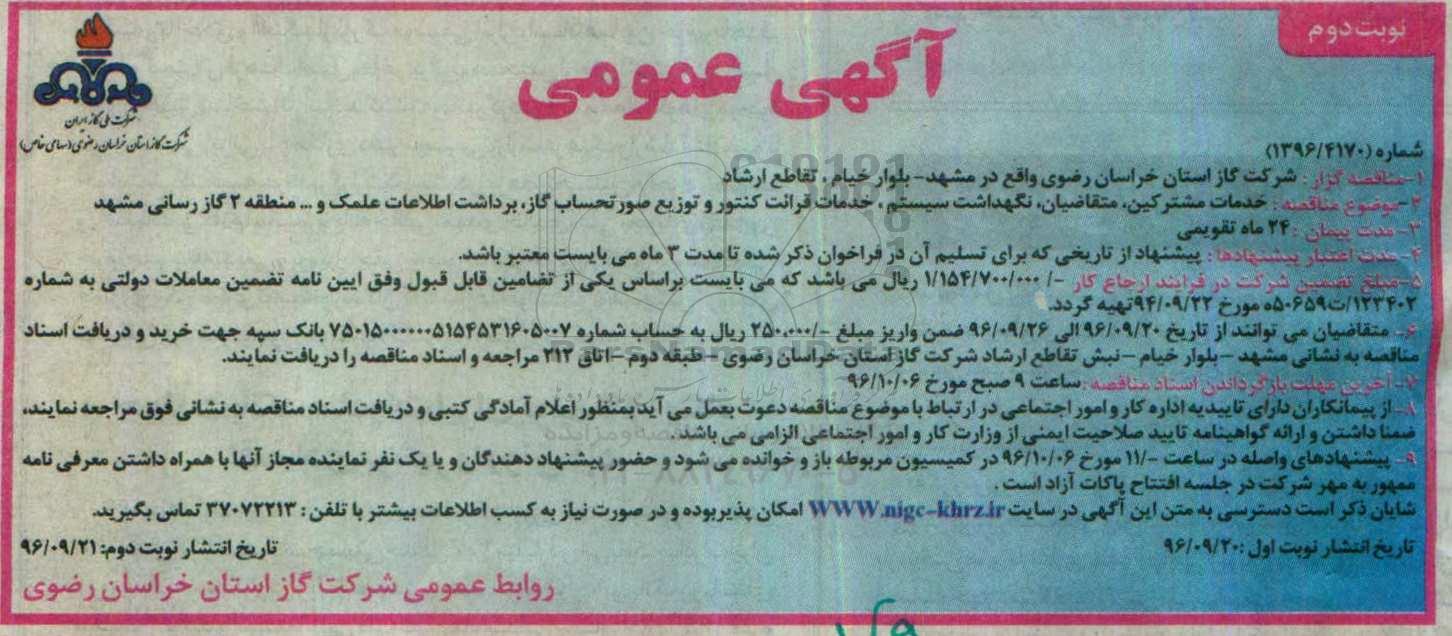 نوبت دوم
آگهی عمومی
شرکت ملی گاز ایران
شرکت گاز استان خراسان رضوی (سهامی خاص)
شماره (۱۳۹۶/۴۱۷۰)
۱-مناقصه گزار: شرکت گاز استان خراسان رضوی واقع در مشهد- بلوار خیام ، تقاطع ارشاد
۲-موضوع مناقصه: خدمات مشترکین، متقاضیان، نگهداشت سیستم ، خدمات قرائت کنتور و توزیع صورتحساب گاز، برداشت اطلاعات علمک و ... منطقه ۲ گاز رسانی مشهد
۳-مدت پیمان :۲۴ ماه تقویمی
۴-مدت اعتبار پیشنهادها: پیشنهاد از تاریخی که برای تسلیم آن در فراخوان ذکر شده تا مدت ۳ ماه می بایست معتبر باشد.
۵-مبلغ تضمین شرکت در فرایند ارجاع کار -/ ۱/۱۵۴/۷۰۰/۰۰۰ ریال می باشد که می بایست براساس یکی از تضامین قابل قبول وفق ایین نامه تضمین معاملات دولتی به شماره
۱۲۳۴۰۲/ت۵۰۶۵۹ه مورخ ۹۴/۰۹/۲۲تهیه گردد.
۶- متقاضیان می توانند از تاریخ ۹۶/۰۹/۲۰ الی ۹۶/۰۹/۲۶ ضمن واریز مبلغ -/۲۵۰،۰۰۰ ریال به حساب شماره ۷۵۰۱۵۰۰۰۰۰۰۵۱۵۴۵۳۱۶۰۵۰۰۷ بانک سپه جهت خرید و دریافت اسناد
مناقصه به نشانی مشهد -بلوار خیام -نبش تقاطع ارشاد شرکت گاز استان خراسان رضوی - طبقه دوم -اتاق ۲۱۲ مراجعه و اسناد مناقصه را دریافت نمایند.
۷- آخرین مهلت بازگرداندن اسناد مناقصه :ساعت ۹ صبح مورخ ۹۶/۱۰/۰۶
۸- از پیمانکاران دارای تاییدیه اداره کار و امور اجتماعی در ارتباط با موضوع مناقصه دعوت بعمل می آید بمنظور اعلام آمادگی کتبی و دریافت اسناد مناقصه به نشانی فوق مراجعه نمایند،
ضمنا داشتن و ارائه گواهینامه تایید صلاحیت ایمنی از وزارت کار و امور اجتماعی الزامی می باشد.
۹- پیشنهادهای واصله در ساعت -/۱۱ مورخ ۹۶/۱۰/۰۶ در کمیسیون مربوطه باز و خوانده می شود و حضور پیشنهاد دهندگان و یا یک نفر نماینده مجاز آنها با همراه داشتن معرفی نامه
ممهور به مهر شرکت در جلسه افتتاح پاکات آزاد است .
شایان ذکر است دسترسی به متن این آگهی در سایت WWW.nigc-khrz.ir امکان پذیر بوده و در صورت نیاز به کسب اطلاعات بیشتر با تلفن : ۳۷۰۷۲۲۱۳ تماس بگیرید.
تاریخ انتشار نوبت اول :۹۶/۰۹/۲۰
تاریخ انتشار نوبت دوم: ۹۶/۰۹/۲۱
روابط عمومی شرکت گاز استان خراسان رضوی